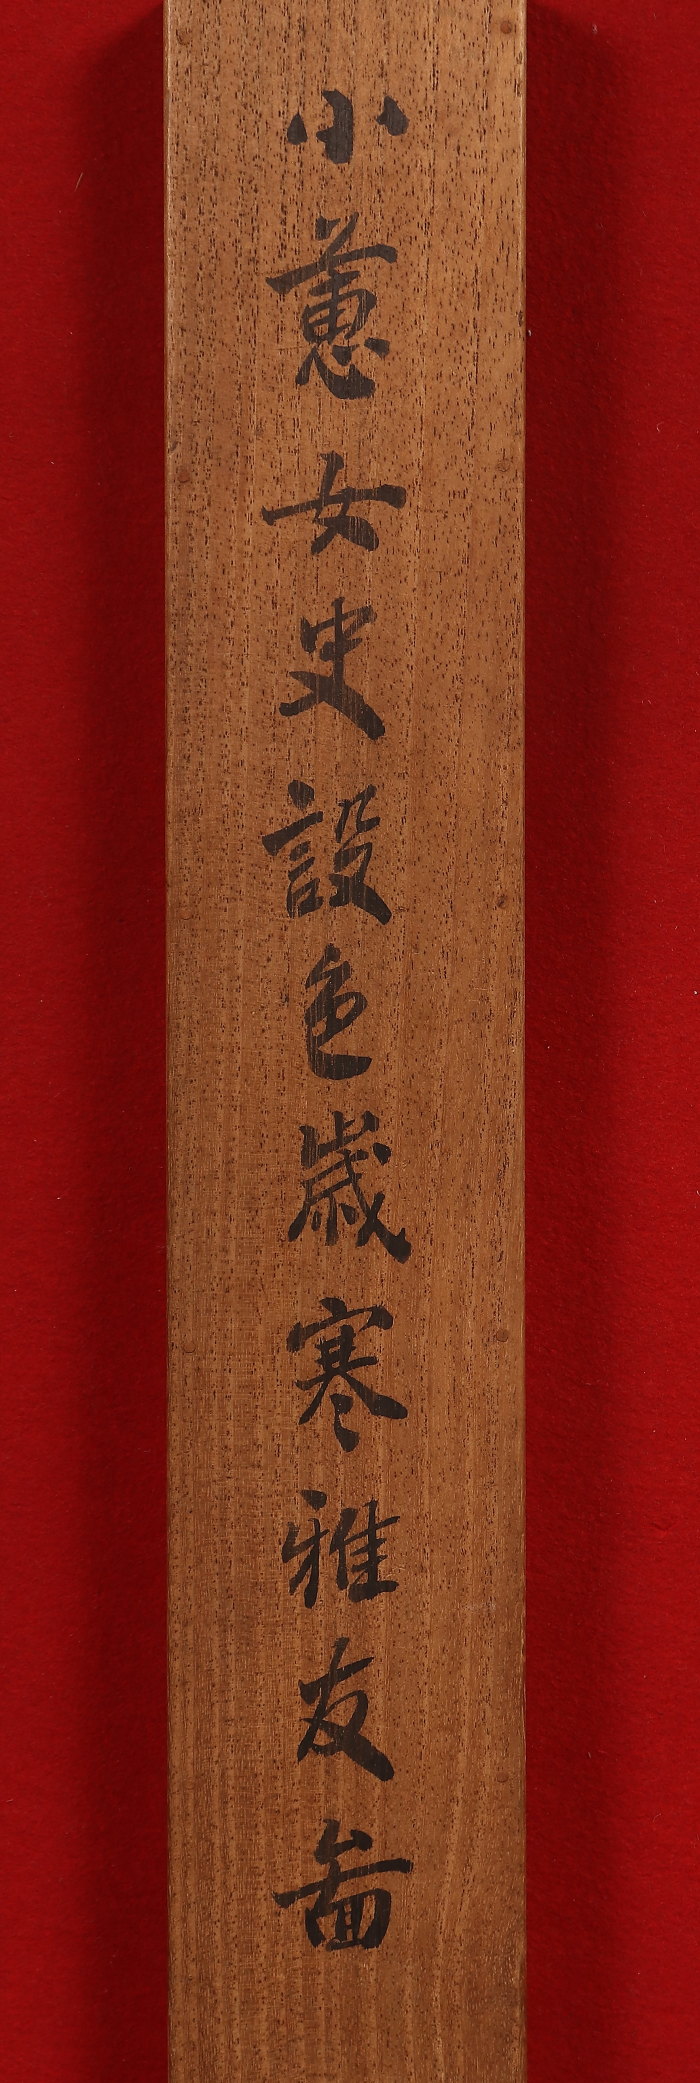 小蕙女史設色歳寒雅友啚